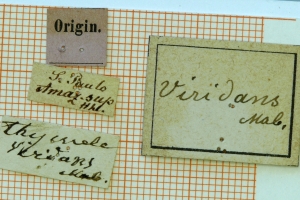 Origin.
S. Paulo
Amaz. sup
Hhl.
thymele
viridans
Mab.
Viridans
Mab.